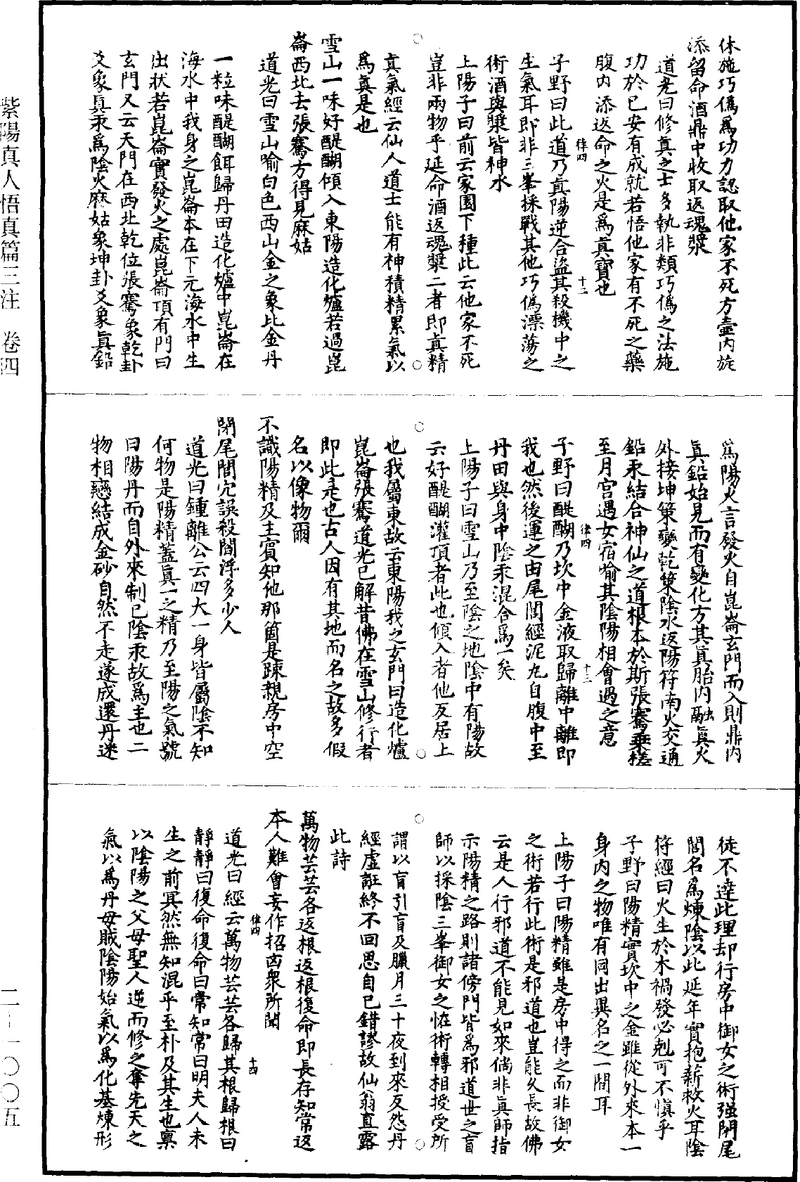 紫陽真人悟真篇三注　卷四
休施巧僞爲功力認取他家不死方壺內旋
添留命酒鼎中收取返魂漿
道光曰修真之士多執非類巧僞之法施
功於已安有成就若悟他家有不死之藥
腹內添返命之火是爲真寶也
子野曰此道乃真陽逆合盜其殺機中之
生氣耳即非三峯採戰其他巧僞漂蕩之
術酒與漿皆神水
上陽子曰前云家園下種此云他家不死
豈非兩物乎延命酒返魂漿二者即真精
真氣經云仙人道士能有神積精累氣以
爲真是也
雪山一味好醍醐傾入東陽造化爐若過崑
崙西北去張騫方得見麻姑
道光曰雪山喻白色西山金之象比金丹
一粒味醍醐餌歸丹田造化爐中崑崙在
海水中我身之崑崙本在下元海水中生
出狀若崑崙實發火之處崑崙頂有門曰
玄門又云天門在西北乾位張騫象乾卦
爻象真汞爲陰火麻姑象坤卦爻象真鉛
律四
十二
爲陽火言發火自崑崙玄門而入則鼎內
真鉛始見而有變化方其真胎內融真火
外接坤策變乾策陰水返陽符南火交通
鉛汞結合神仙之道根本於斯張騫乘槎
至月宮遇女宿喻其陰陽相會過之意
子野曰醍醐乃坎中金液取歸離中離即
我也然後運之由尾閭經泥丸自腹中至
丹田與身中陰汞混合爲一矣
上陽子曰雪山乃至陰之地陰中有陽故
云好醍醐灌頂者此也傾入者他反居上
也我屬東故云東陽我之玄門曰造化爐
崑崙張騫道光已解昔佛在雪山修行者
即此是也古人因有其地而名之故多假
名以像物爾
不識陽精及主賓知他那箇是踈親房中空
閉尾閭宂誤殺閻浮多少人
道光曰鍾離公云四大一身皆屬陰不知
何物是陽精蓋真一之精乃至陽之氣號
曰陽丹而自外來制已陰汞故爲主也二
物相戀結成金砂自然不走遂成還丹迷
律四
十三
徒不達此理却行房中御女之術強閉尾
閭名爲煉陰以此延年實抱薪救火耳陰
符經曰火生於木禍發必剋可不慎乎
子野曰陽精實坎中之金雖從外來本一
身內之物唯有同出異名之一間耳
上陽子曰陽精雖是房中得之而非御女
之術若行此術是邪道也豈能久長故佛
云是人行邪道不能見如來倘非真師指
示陽精之路則諸傍門皆爲邪道世之盲
師以採陰三峯御女之恠術轉相授受所
謂以盲引盲及臘月三十夜到來反怨丹
經虛誑終不回思自已錯謬故仙翁直露
此詩
萬物芸芸各返根返根復命即長存知常返
本人難會妄作招凶衆所聞
道光曰經云萬物芸芸各歸其根歸根曰
靜靜曰復命復命曰常知常曰明夫人未
生之前冥然無知混乎至朴及其生也稟
以陰陽之父母聖人逆而修之奪先天之
氣以爲丹母賊陰陽始氣以爲化基煉形
律四
十四
二-一〇〇五